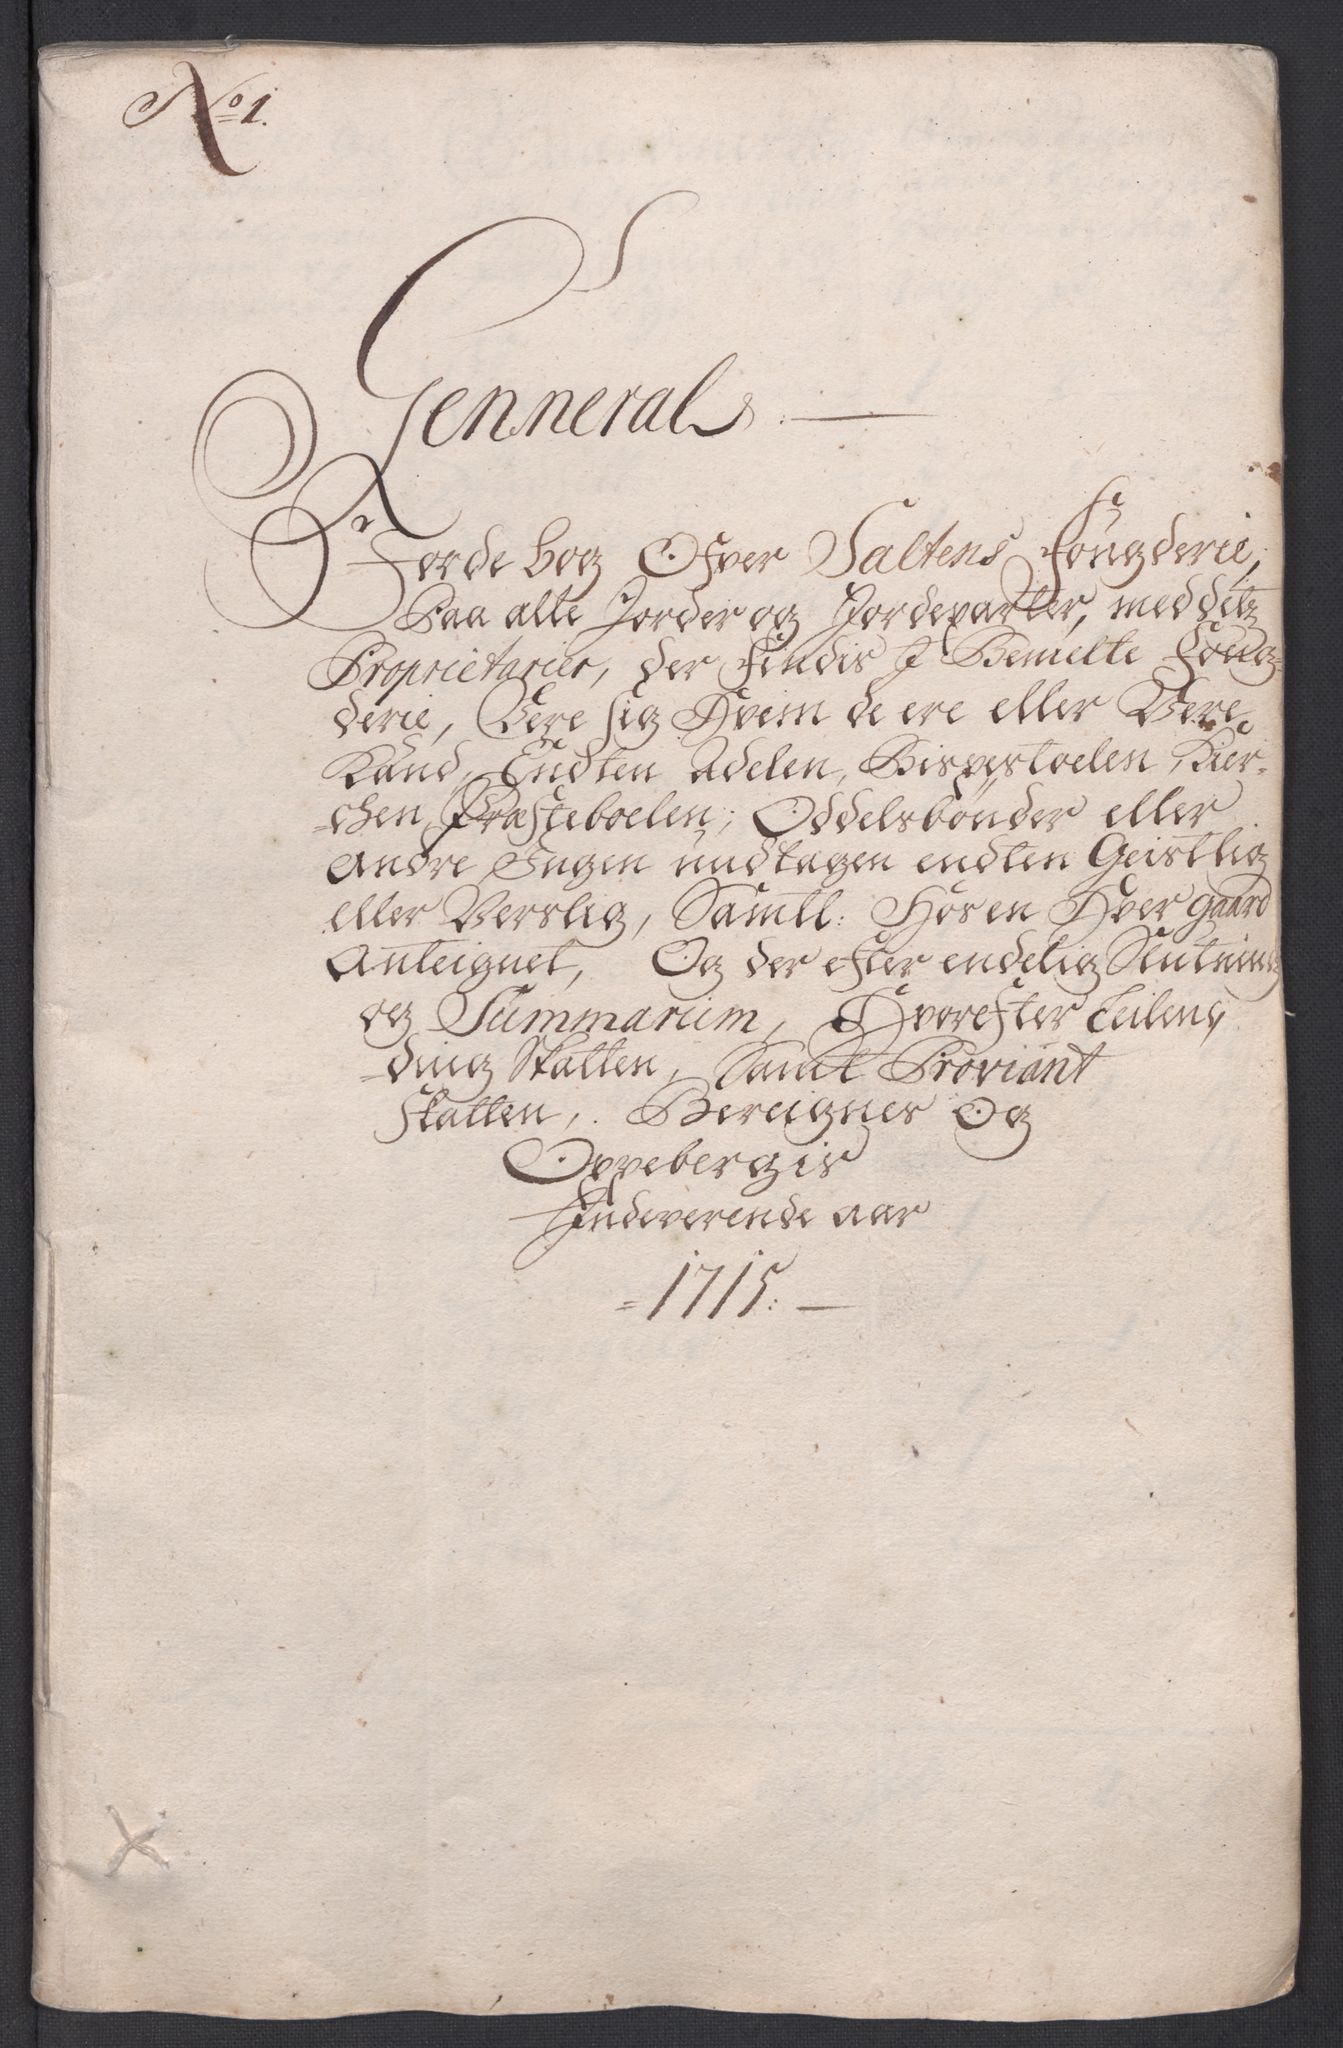 No 1.
Genneral
Jorde bog Ofver Saltens Fougderie,
Paa alle Jorder og Jordeparter, med detz
Proprietarier, der Findis I Bemelte Foug-
derie, Være sig Hvem de ere eller Være
Kand, Endten Adelen, Bispestoelen, Kier-
chen, Præsteboelen, Oddelsbønder eller
Andre Ingen undtagen endten Geistlig
eller Verslig, Samtl: Hos en Hver gaard
Anteignet, Og der efter endelig
og Summarium, Hvorefter Leilen-
ding Skatten, Samt Proviant
skatten, Bereignes Og
Oppebergis
Indeverende aar
1715.